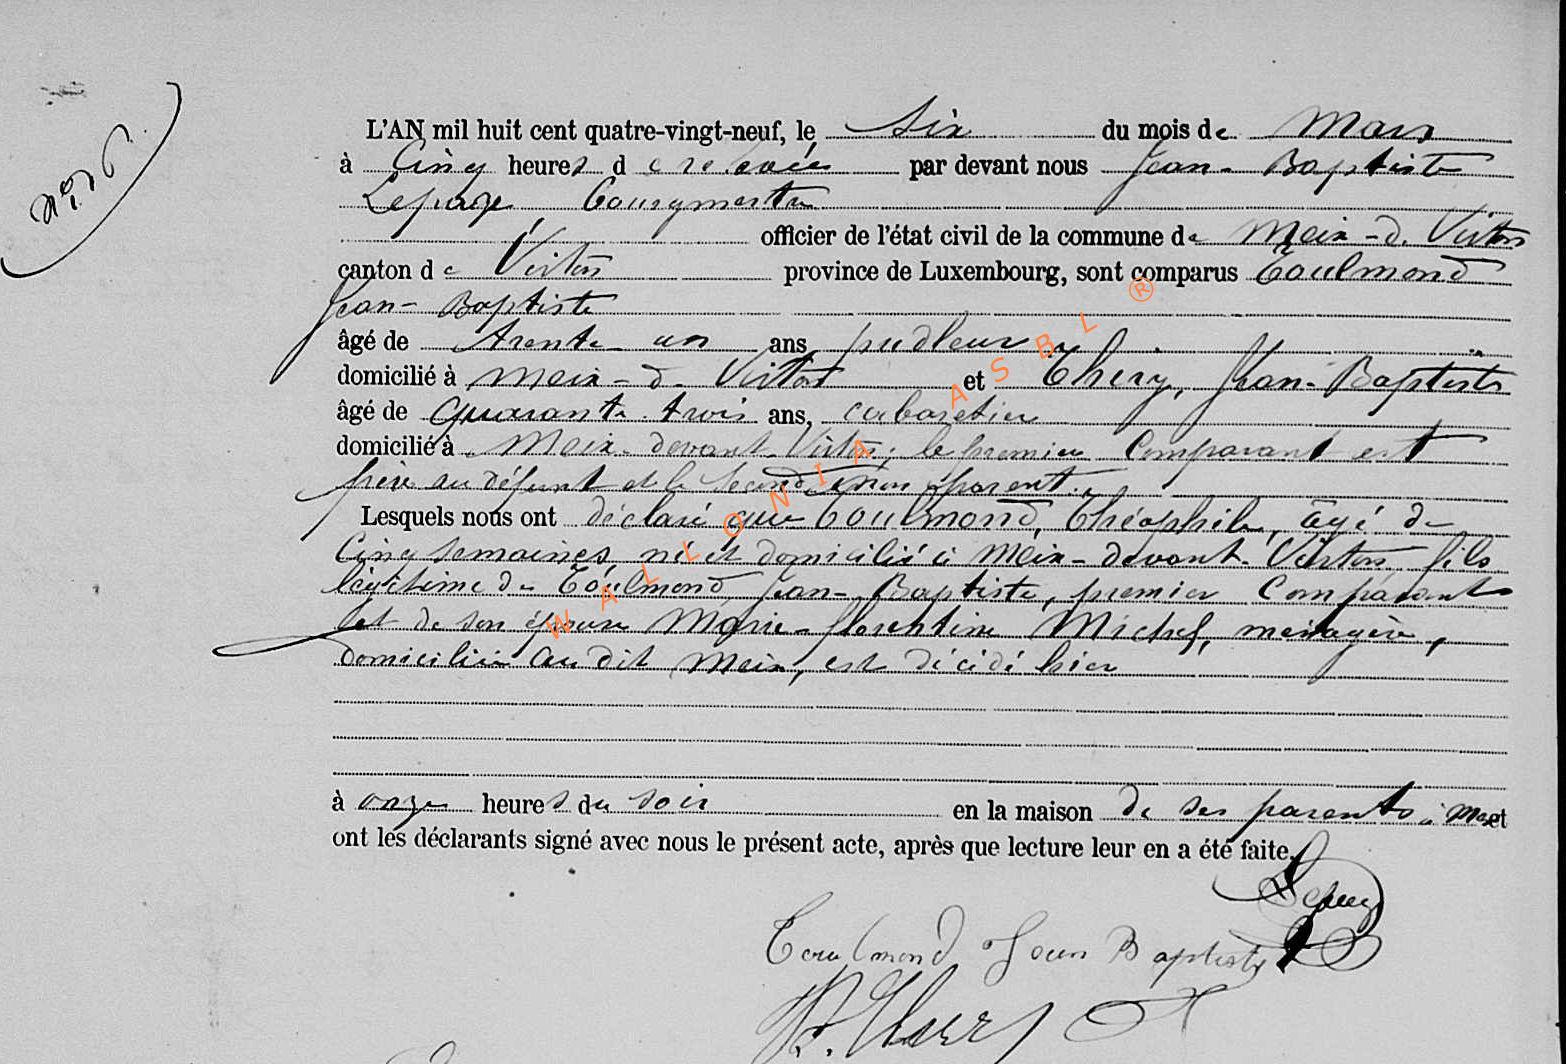 N° 6
L'AN mil huit cent quatre-vingt-neuf, le six du mois de Mars
à Cinq heures de relevée par devant nous Jean-Baptiste
Lepage, Bourgmestre
officier de l'état civil de la commune de Meix-d. Virton
canton de Virton province de Luxembourg, sont comparus Toulmond
Jean-Baptiste
âgé de trente un ans pudleur
domicilié à Meix-d-Virton et Thery, Jean-Baptiste
âgé de quarante trois ans, cabaretier
domicilié à Meix-devant-Virton; le premier Comparant est
père au défunt et le second non parent.
Lesquels nous ont déclaré que Toulmond, Théophile, âgé de
Cinq semaines, né et domicilié à Meix-devant-Virton, fils
légitime de Toulmond, Jean-Baptiste, premier Comparant
et de son épouse Marie-florentine Michel, ménagère,
domiciliée au dit Meix, est décédé hier
à onze heures du soir en la maison de ses parents à Meix et
ont les déclarants signé avec nous le présent acte, après que lecture leur en a été faite.
Lepage
Toulmond Jean Baptiste
WALLONIA ASBL ®